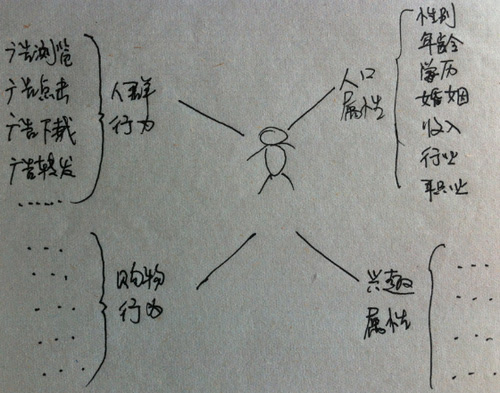 广告浏览
广告点击
广告下载
广告转发
......
人群
行为
人口
属性
性别
年龄
学历
婚姻
收入
行业
职业
...
...
...
...
购物
行为
兴趣
属性
...
...
...
...